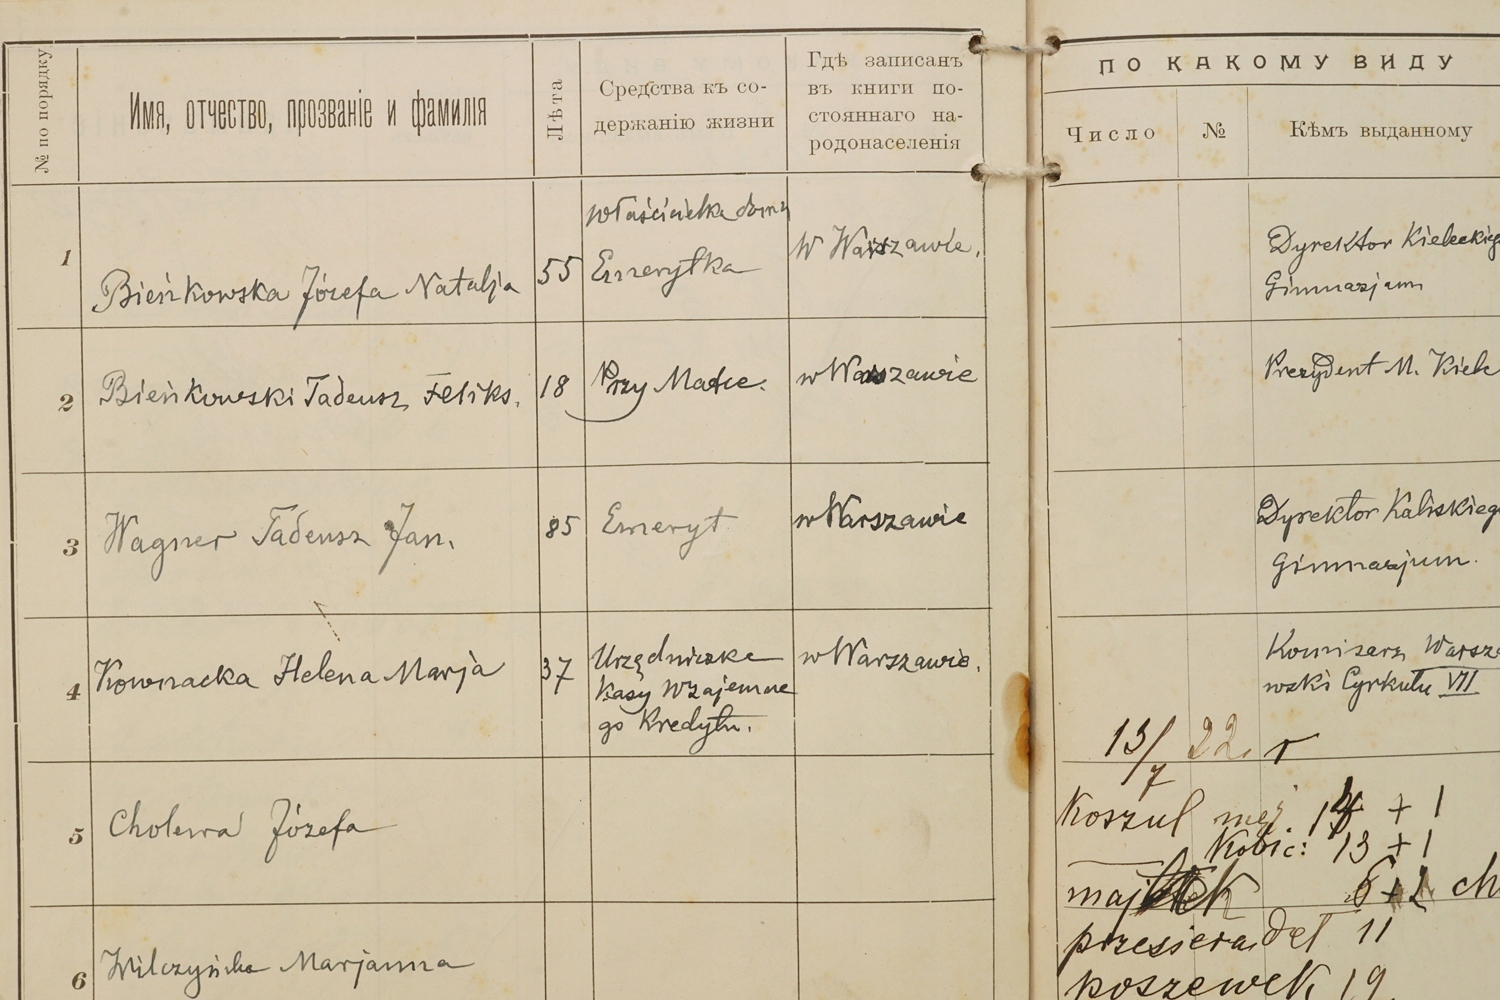 № по порядку
Имя, отчество, прозваніе и фамилія
Лѣта
Средства къ со-
держанію жизни
Гдѣ записанъ
въ книги по-
стояннаго на-
родонаселенія
ПО КАКОМУ ВИДУ
Число
№
Кѣмъ выданному
1
Bieńkowska Józefa Natalja
55
właścicielka domu
Emerytka
W Warszawie.
Dyrektor Kieleckieg
Gimnazjum
2
Bieńkowski Tadeusz Feliks.
18
Przy Matce.
w Warszawie
Prezydent M. Kielc
3
Wagner Tadeusz Jan.
85
Emeryt
w Warszawie
Dyrektor Kaliskieg
Gimnazjum.
4
Kownacka Helena Marja
37
Urzędniczka
Kasy Wzajemne
go Kredytu.
w Warszawie.
Komisarz Warsza
wski Cyrkułu VII
13/7 22. r
5
Cholewa Józefa
Koszul męz + 1
Kobic: 13 + 1
majtek 6 + ch
przesieradeł 11
poszewek 19
6
Wilczyńska Marjanna